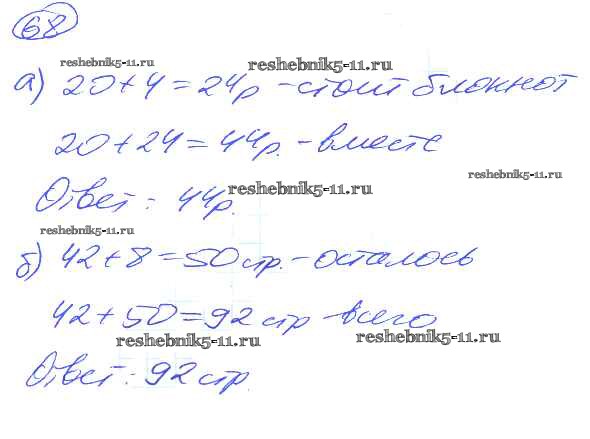 68
reshebnik5-11.ru
reshebnik5-11.ru
а) 20+4=24р - стоит блокнот
20+24=44р. - вместе
reshebnik5-11.ru
Ответ: 44р.
reshebnik5-11.ru
reshebnik5-11.ru
б) 42+8=50стр. - осталось
42+50=92стр - всего
reshebnik5-11.ru
reshebnik5-11.ru
Ответ: 92стр.